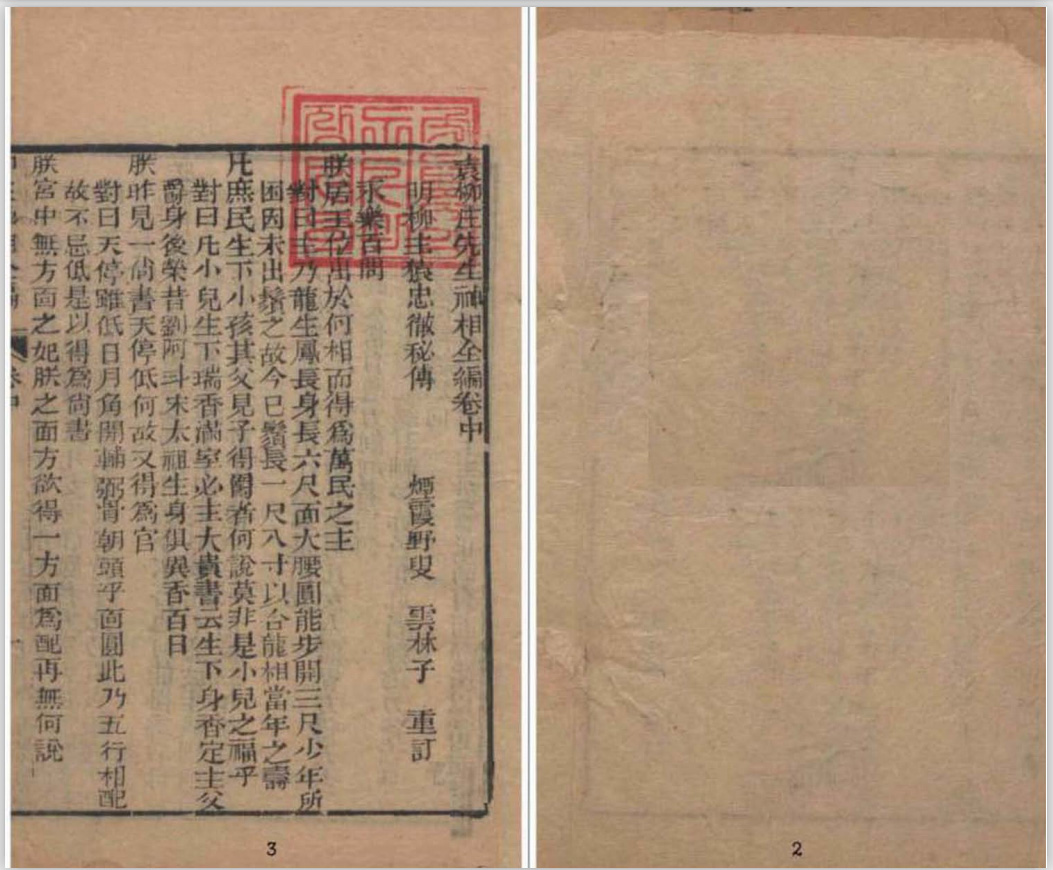 袁柳庄先生神相全編卷中
明柳主猿忠徹秘傳 煙霞野叟 雲林子 重訂
永樂百問
朕居王位出於何相而得爲萬民之主
對曰主乃龍生鳳長身長六尺面大腰圓能步開三尺少年所
困因未出鬚之故今已鬚長一尺八寸以合龍相當年之壽
凡庶民生下小孩其父見子得爵者何說莫非是小兒之福乎
對曰凡小兒生下瑞香滿室必主大貴書云生下身香定主父
爵身後榮昔劉阿斗宋太祖生身俱異香百日
朕昨見一尙書天停低何故又得爲官
對曰天停雖低日月角開輔弼骨朝頭平面圓此乃五行相配
故不忌低是以得爲尙書
朕宮中無方面之妃朕之面方欲得一方面爲配再無何說
卷中
一
3
2